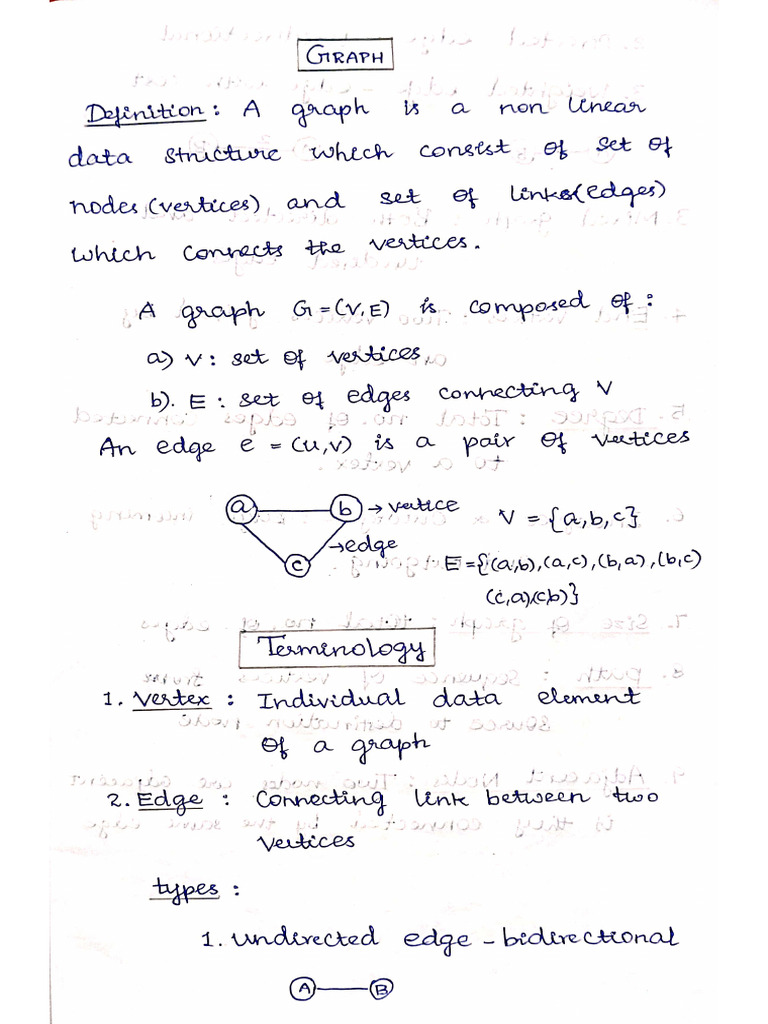 GRAPH
Definition: A graph is a non linear
data structure which consist of set of
nodes(vertices) and set of links(edges)
which connects the vertices.
A graph G=(V,E) is composed of:
a) V: set of vertices
b). E: set of edges connecting V
An edge e = (u,v) is a pair of vertices
a b → vertice V = {a,b,c}
→ edge
c E={(a,b),(a,c),(b,a),(b,c)
(c,a),(c,b)}
Terminology
1. Vertex: Individual data element
of a graph
2. Edge: Connecting link between two
vertices
types:
1. undirected edge - bidirectional
A B